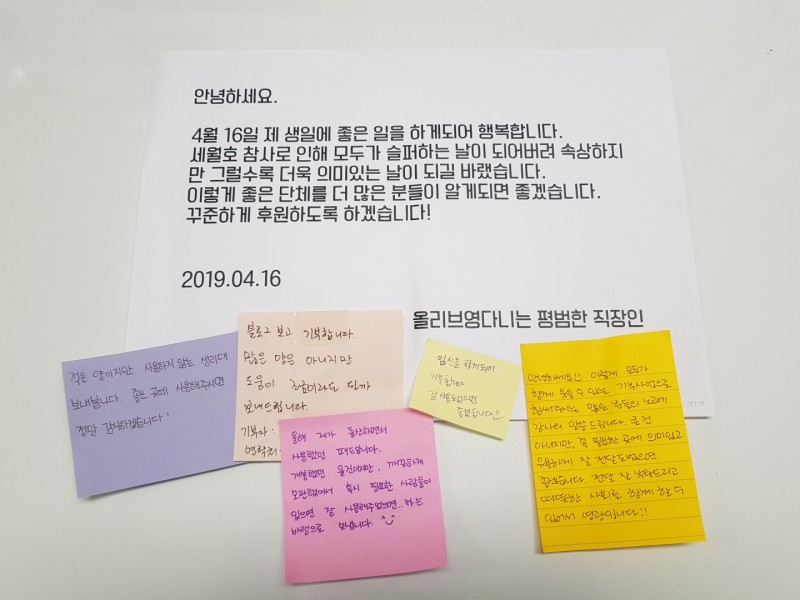 안녕하세요.
4월 16일 제 생일에 좋은 일을 하게되어 행복합니다.
세월호 참사로 인해 모두가 슬퍼하는 날이 되어버려 속상하지
만 그럴수록 더욱 의미있는 날이 되길 바랬습니다.
이렇게 좋은 단체를 더 많은 분들이 알게되면 좋겠습니다.
꾸준하게 후원하도록 하겠습니다!
2019.04.16
올리브영다니는 평범한 직장인
적은 양이지만 사용하지 않는 생리대
보내봅니다. 좋은 곳에 사용해주시면
정말 감사하겠습니다!
블로그 보고 기부합니다.
많은 양은 아니지만
도움이 조금이라도 될까
보내드립니다.
기부자:
연락처:
올해 제가 출산하면서
사용했던 패드입니다.
개봉했던 물건이지만, 깨끗하게
보관했어서 혹시 필요한 사람들이
있으면 잘 사용해주었으면.. 하는
바램으로 보냅니다.
임신을 하게되어
기부해요
잘 사용되었으면
좋겠습니다!!
안녕하세요!! 이렇게 모두가
함께 도울 수 있는 기부사업으로
힘써주시는 많은 분들의 노고에
감사의 말씀 드립니다. 큰건
아니지만, 꼭 필요한 곳에 의미있고
유용하게 잘 전달되었으면
좋겠습니다. 전달 잘 부탁드리고
따뜻한 사회를 함께 할 수
있어서 영광입니다!!